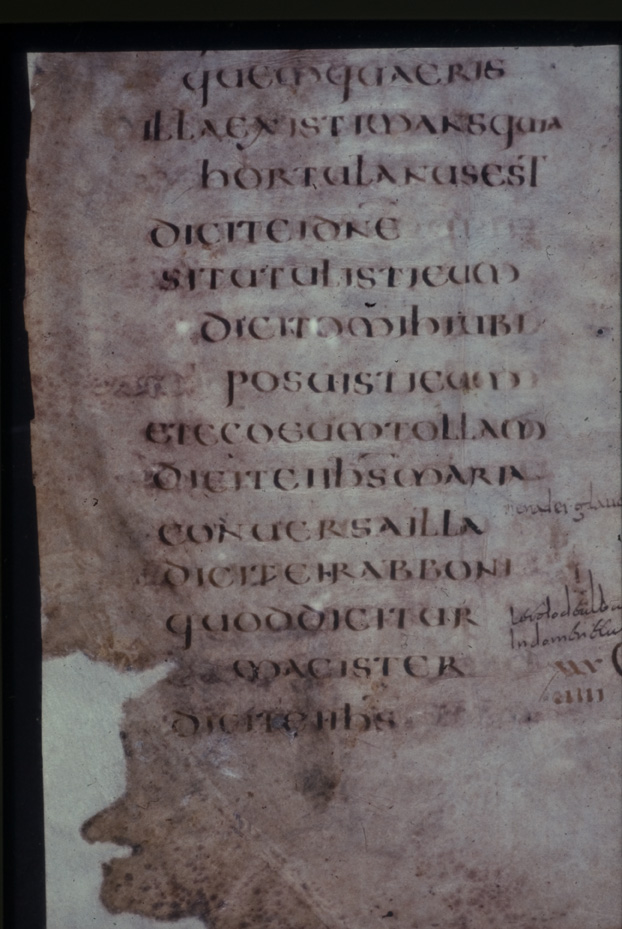 quemquaeris
illaexistimansquia
hortulanusest
diciteidne
situtulisticum
dicitomihiubi
posuisticum
etegoeumtollam
diciteiihsmaria
conuersailla
diciteirabboni
quoddicitur
magister
diciteiihs